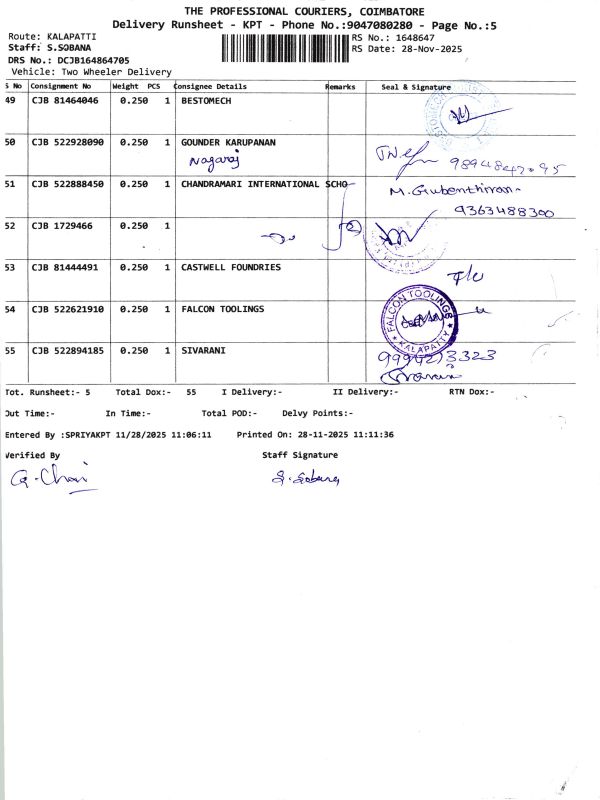 THE PROFESSIONAL COURIERS, COIMBATORE
Delivery Runsheet - KPT - Phone No.:9047080280 - Page No.:5
Route: KALAPATTI
RS No.: 1648647
Staff: S.SOBANA
RS Date: 28-Nov-2025
DRS No.: DCJB164864705
Vehicle: Two Wheeler Delivery
S No Consignment No Weight PCS Consignee Details Remarks Seal & Signature
49 CJB 81464046 0.250 1 BESTOMECH
50 CJB 522928090 0.250 1 GOUNDER KARUPANAN
Nagaraj
51 CJB 522888450 0.250 1 CHANDRAMARI INTERNATIONAL SCHO
M. Gubenthiran
9363488300
52 CJB 1729466 0.250 1
53 CJB 81444491 0.250 1 CASTWELL FOUNDRIES
54 CJB 522621910 0.250 1 FALCON TOOLINGS
FALCON TOOLINGS
KALAPATTY
55 CJB 522894185 0.250 1 SIVARANI
Tot. Runsheet:- 5 Total Dox:- 55 I Delivery:- II Delivery:- RTN Dox:-
Out Time:- In Time:- Total POD:- Delvy Points:-
Entered By :SPRIYAKPT 11/28/2025 11:06:11 Printed On: 28-11-2025 11:11:36
Verified By Staff Signature
S. Sobana